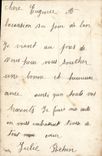 chère Eugénie à
l'occasion du jour de l'an
Je vient au près de
vous pour vous souhaiter
une bonne et heureuse
année ainsi que tous vos
parents Je finis ma carte
en vous embrassant tous de
tout mon cœur
Julie